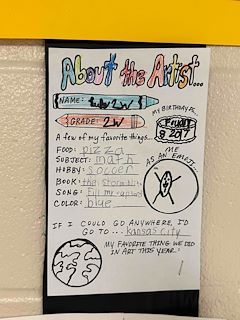 About the Artist...
NAME:
MY BIRTHDAY
GRADE: 2W
2017
A few of my favorite things...
ME
AS AN EMOJI
FOOD: pizza
SUBJECT: math
HOBBY: soccer
BOOK: the
SONG: fill my
COLOR: blue
IF I COULD GO ANYWHERE, I'D
GO TO... kansas city
MY FAVORITE THING WE DID
IN ART THIS YEAR: